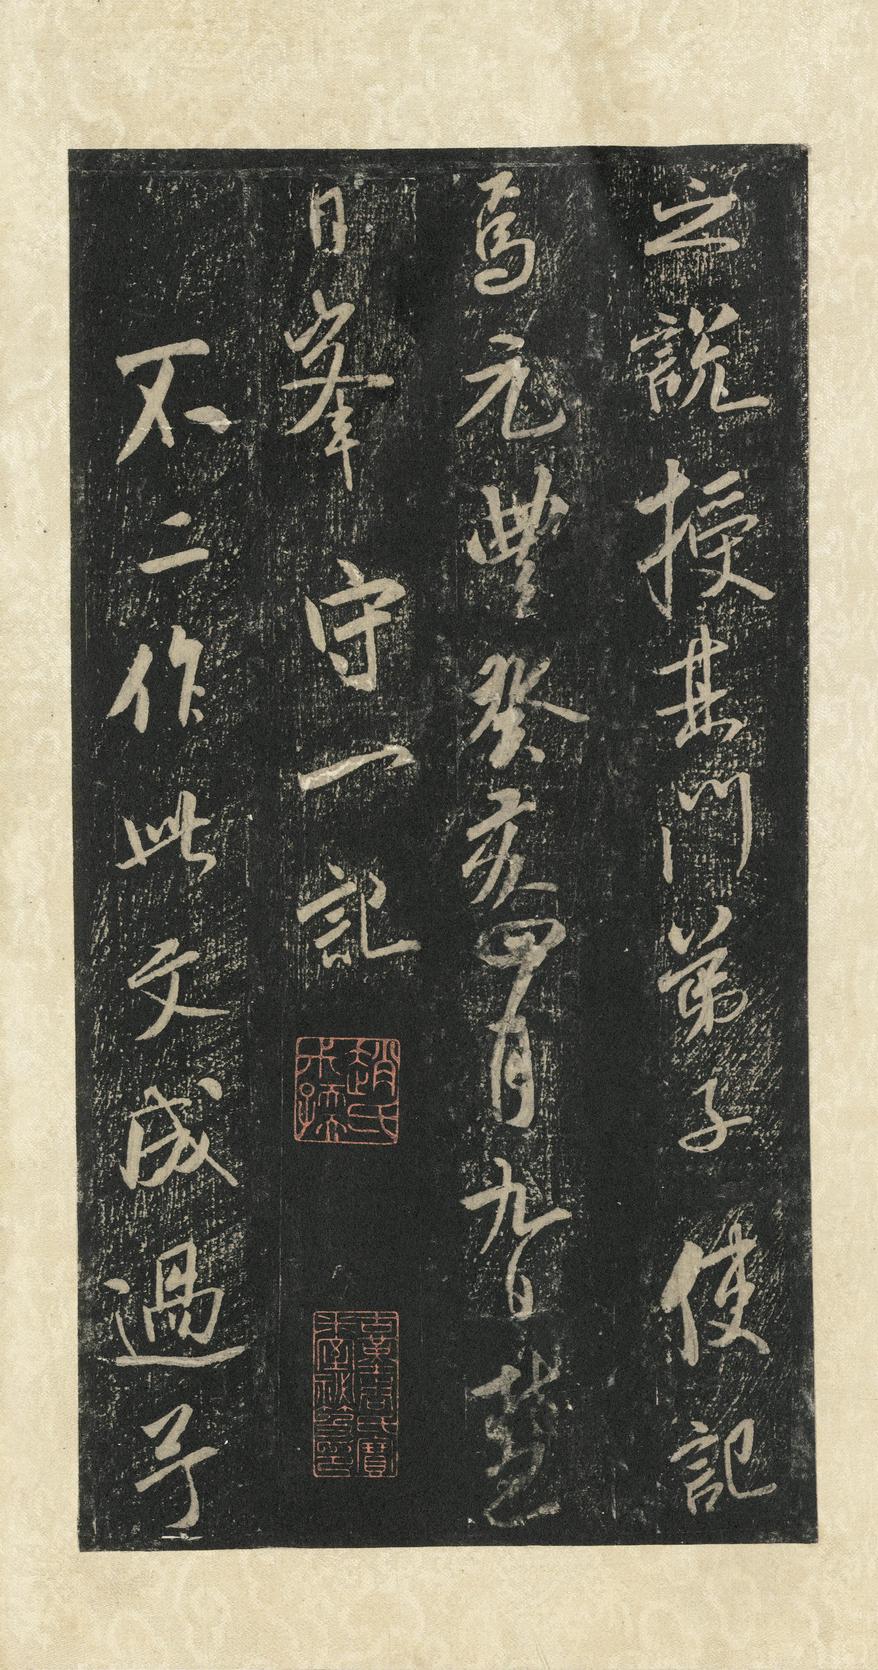 之說授其門弟子使記
焉元豐癸亥四月九日慧
日峯守一記
不二作此文成過予
趙氏